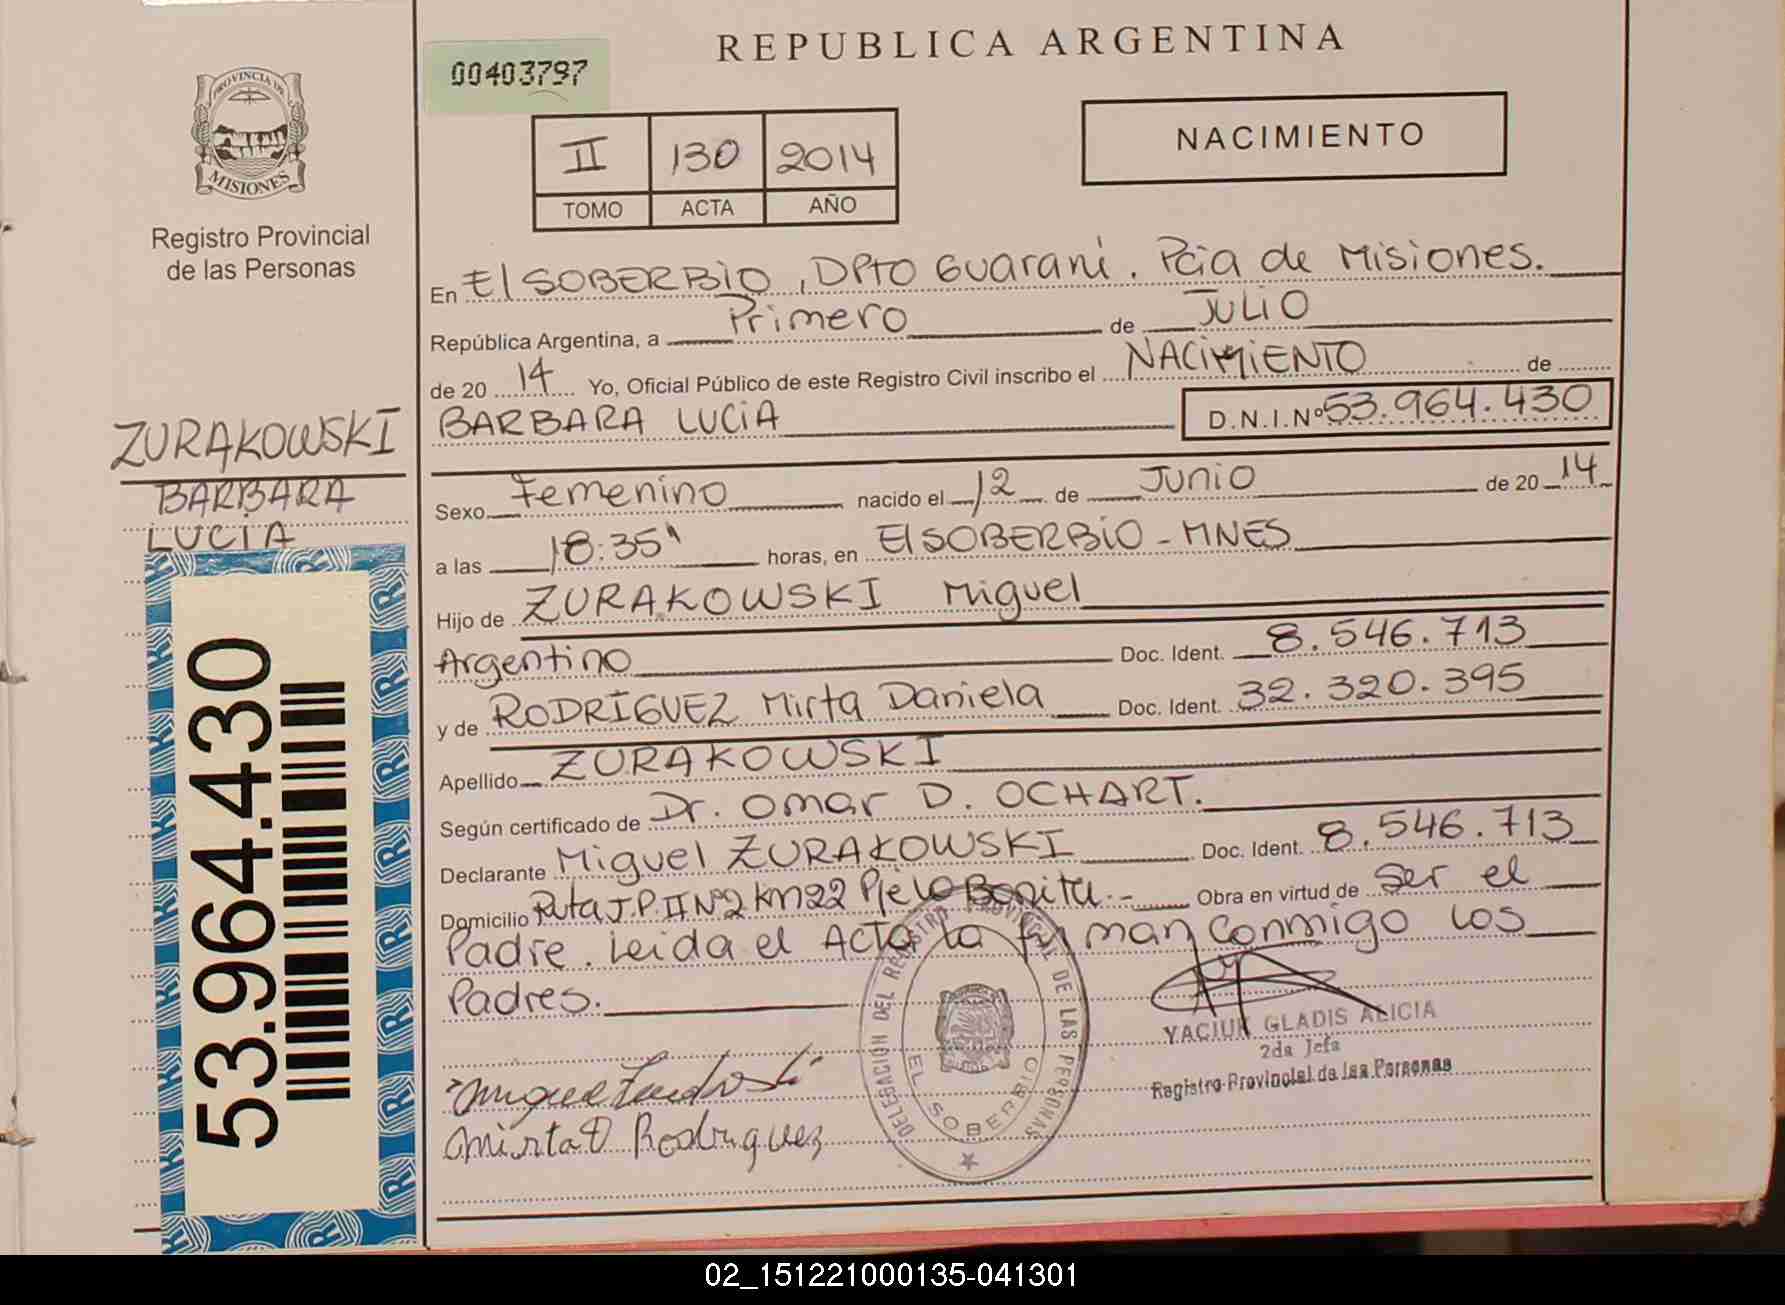 REPUBLICA ARGENTINA
00403797
NACIMIENTO
II 130 2014
TOMO ACTA AÑO
PROVINCIA DE
MISIONES
Registro Provincial
de las Personas
ZURAKOWSKI
BARBARA
LUCIA
53.964.430
En El SOBERBIO, DPTO Guarani. Pcia de Misiones.
República Argentina, a Primero de JULIO
de 20 14 Yo, Oficial Público de este Registro Civil inscribo el NACIMIENTO de
BARBARA LUCIA D.N.I.Nº 53.964.430
Sexo Femenino nacido el 12 de Junio de 20 14
a las 18:35' horas, en El SOBERBIO - MNES
Hijo de ZURAKOWSKI Miguel
Argentino Doc. Ident. 8.546.713
y de RODRÍGUEZ Mirta Daniela Doc. Ident. 32.320.395
Apellido ZURAKOWSKI
Según certificado de Dr. Omar D. OCHART.
Declarante Miguel ZURAKOWSKI Doc. Ident. 8.546.713
Domicilio Ruta J.P.II Nº2 Km22 Pje Lo Bonita.- Obra en virtud de ser el
Padre. Leida el Acta la firman conmigo los
Padres.
YACIUK GLADIS ALICIA
2da Jefa
Registro Provincial de las Personas
DELEGACIÓN DEL REGISTRO PROVINCIAL DE LAS PERSONAS
EL SOBERBIO
Mirta D Rodriguez
02_151221000135-041301